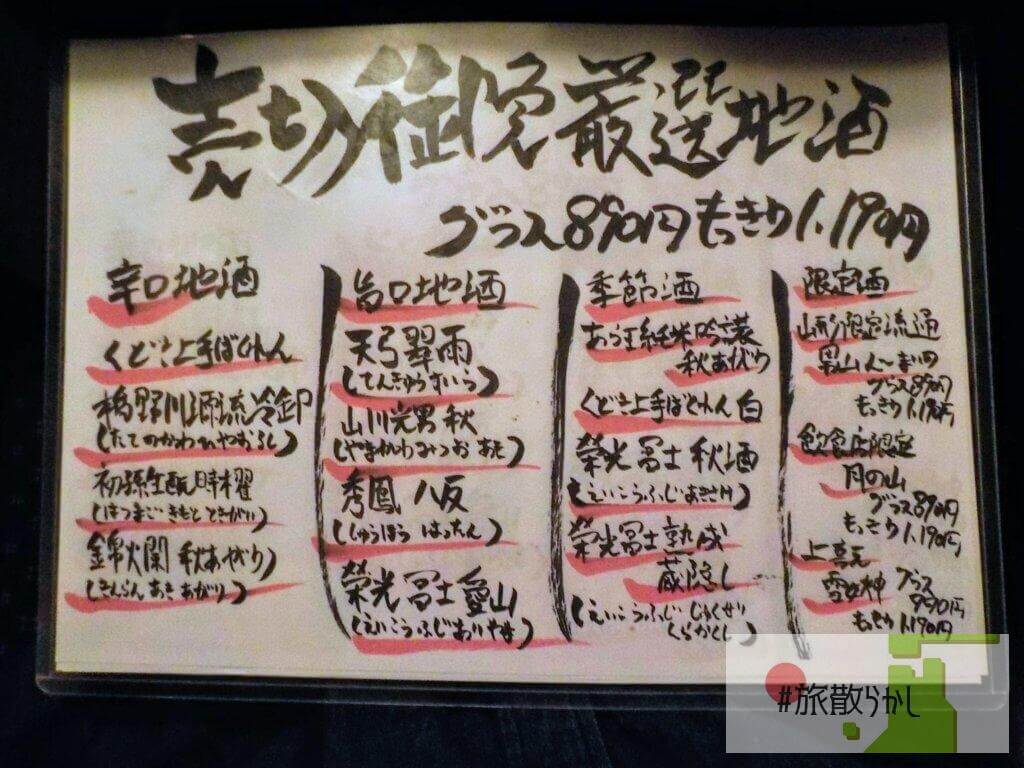 売切御免厳選地酒
グラス890円もっきり1.190円
辛口地酒
くどき上手ばくれん
楯野川源流冷卸
(たてのかわひやおろし)
初孫生酛時櫂
(はつまご きもと ときがい)
錦爛 秋あがり
(きんらん あき あがり)
旨口地酒
天弓翠雨
(てんきゅうすいう)
山川光男 秋
(やまかわみつお あき)
秀鳳 八反
(しゅうほう はったん)
榮光冨士愛山
(えいこうふじあいやま)
季節酒
純米吟醸
秋あがり
くどき上手ばくれん 白
榮光冨士 秋酒
(えいこうふじあきざけ)
榮光冨士熟成
蔵隠し
(えいこうふじ じゅくせい
くらかくし)
限定酒
山形限定流通
男山
グラス890円
もっきり1.190円
飲食店限定
月の山
グラス890円
もっきり1.190円
上喜元
雪女神 グラス
990円
もっきり1.190円
#旅散らかし